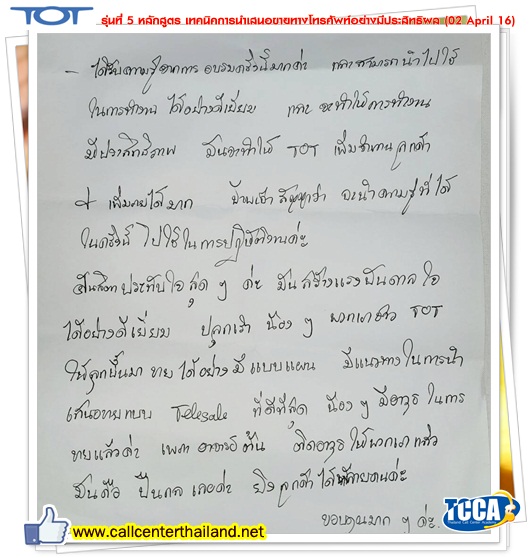 TOT
รุ่นที่ 5 หลักสูตร เทคนิคการนำเสนอขายทางโทรศัพท์อย่างมีประสิทธิผล (02 April 16)
- ได้รับความรู้จากการ อบรมครั้งนี้มากค่ะ และสามารถ นำไปใช้
ในการทำงาน ได้อย่างดีเยี่ยม และ จะทำให้การทำงาน
มีประสิทธิภาพ มันจะทำให้ TOT เพิ่มจำนวน ลูกค้า
+ เพิ่มรายได้มาก ข้าพเจ้า สัญญาว่า จะนำความรู้ที่ได้
ในครั้งนี้ ไปใช้ในการปฏิบัติงานค่ะ
ประทับใจสุด ๆ ค่ะ มันสร้างแรงบันดาลใจ
ได้อย่างดีเยี่ยม ปลุกเร้า น้อง ๆ ชาว TOT
ให้ลุกขึ้นมา ขาย ได้อย่างมีแบบแผน มีแนวทางในการนำ
เสนอขายแบบ Telesale ที่ดีที่สุด น้อง ๆ มีอาวุธ ในการ
ขายแล้วค่ะ เพราะ อาจารย์ต้น ติดอาวุธ ให้พวกเราแล้ว
มันคือ ปืนกล เลยค่ะ ยิงลูกค้าได้หลายคนค่ะ
ขอบคุณมาก ๆ ค่ะ
www.callcenterthailand.net
TCCA
Thailand Call Center Academy